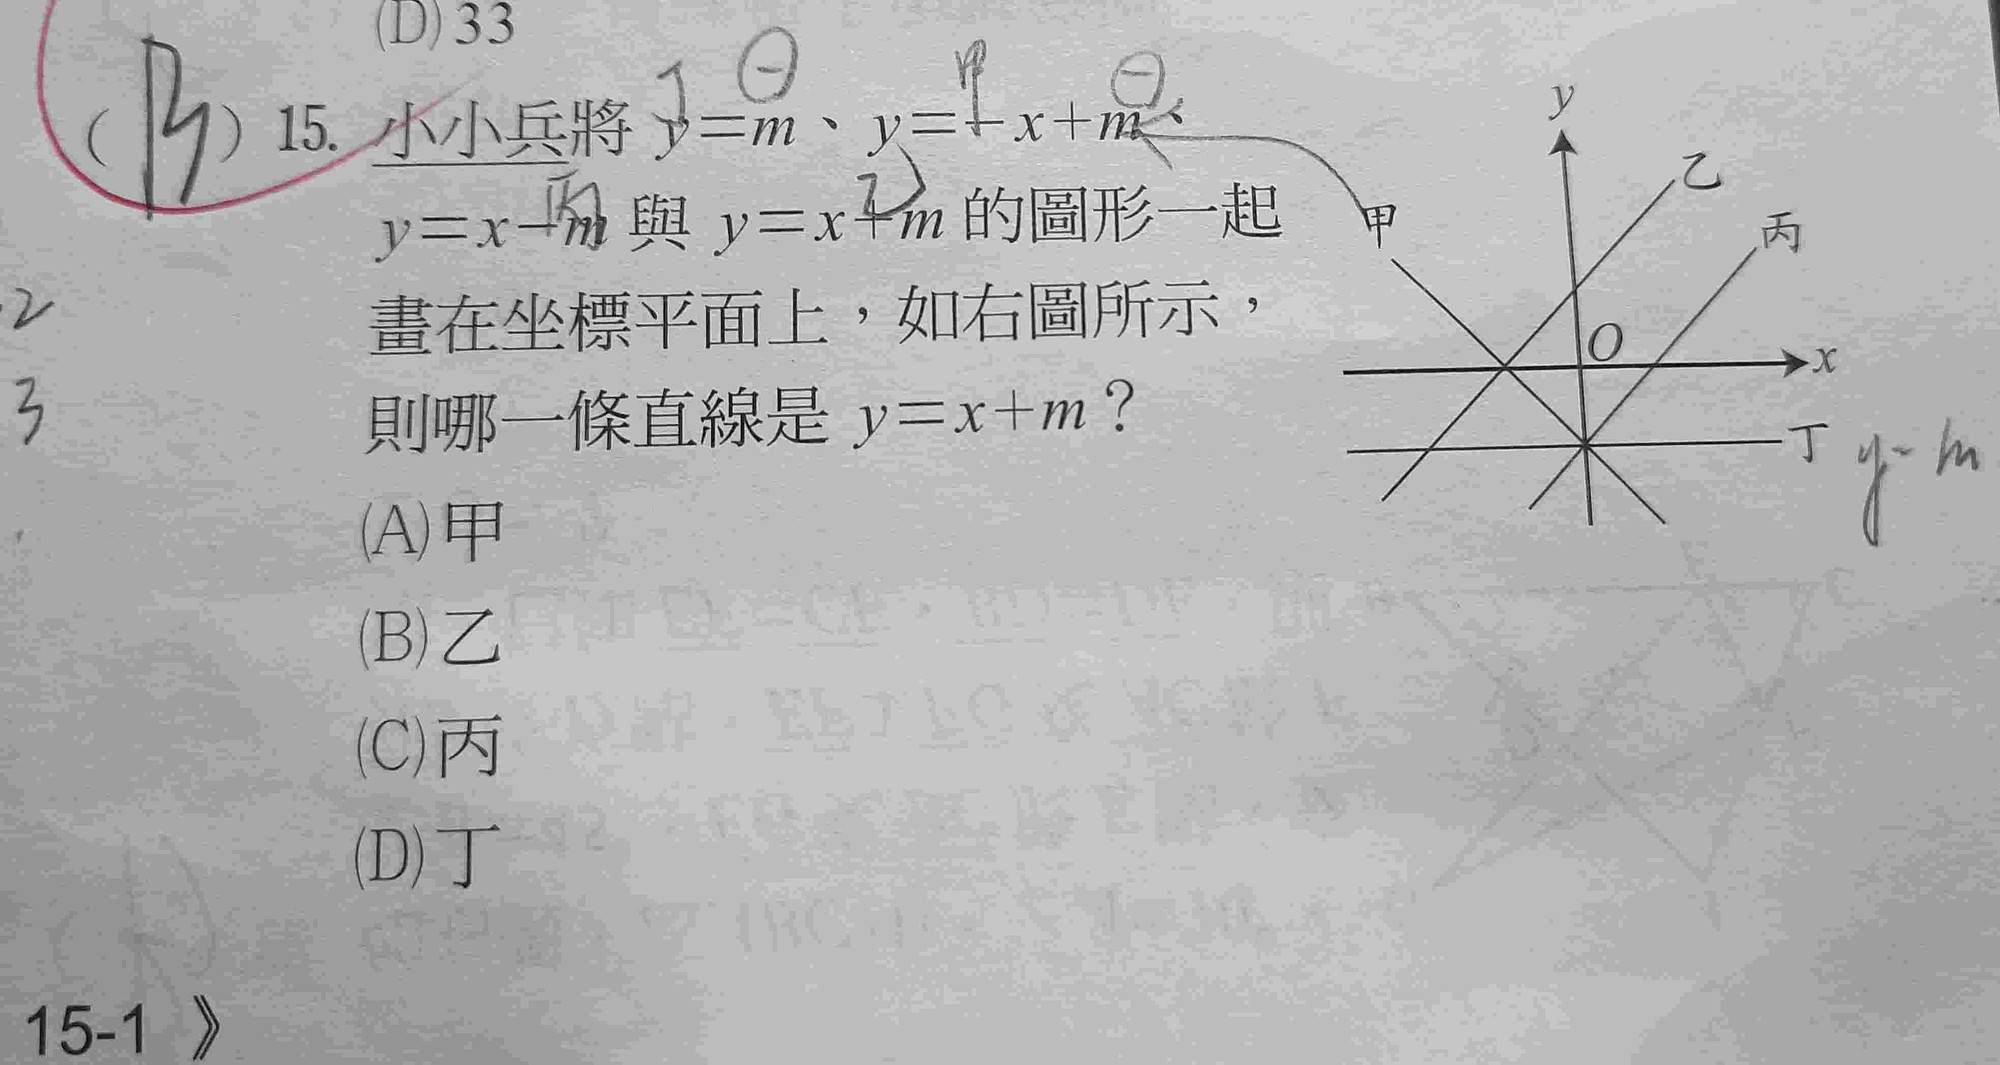 (D) 33
(B) 15. 小小兵將 y=m、y=-x+m、
丁 ⊖ 甲 ⊖
y=x-m 與 y=x+m 的圖形一起
丙 乙
畫在坐標平面上，如右圖所示，
則哪一條直線是 y=x+m？
(A) 甲
(B) 乙
(C) 丙
(D) 丁
y
乙
丙
甲
O
x
丁 y=m
2
3
15-1 》